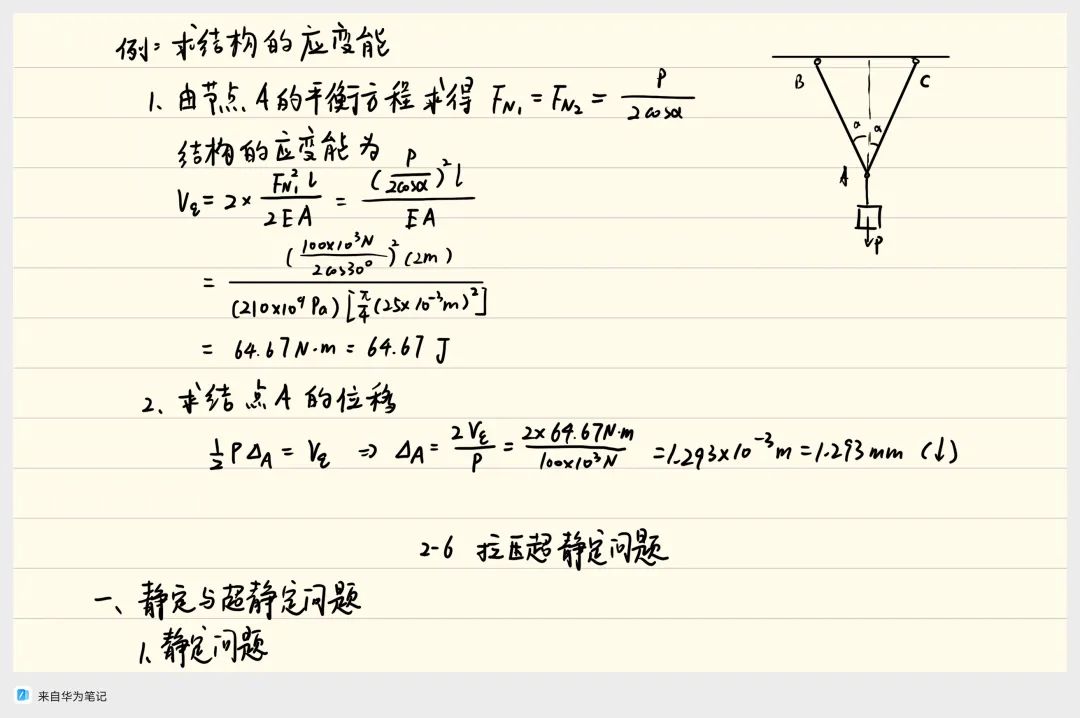 例：求结构的应变能
1、由节点A的平衡方程求得 F_N1 = F_N2 = P/(2cosα)
结构的应变能为
V_ε = 2× (F_N1² l)/(2EA) = ((P/(2cosα))² l)/(EA)
= ((100×10³N/(2cos30°))² (2m))/((210×10⁹Pa)[π/4(25×10⁻³m)²])
= 64.67N·m = 64.67 J
2、求结点A的位移
½PΔ_A = V_ε ⇒ Δ_A = 2V_ε/P = (2×64.67N·m)/(100×10³N) = 1.293×10⁻³m = 1.293mm (↓)
B C
α α
A
P
2-6 拉压超静定问题
一、静定与超静定问题
1、静定问题
来自华为笔记